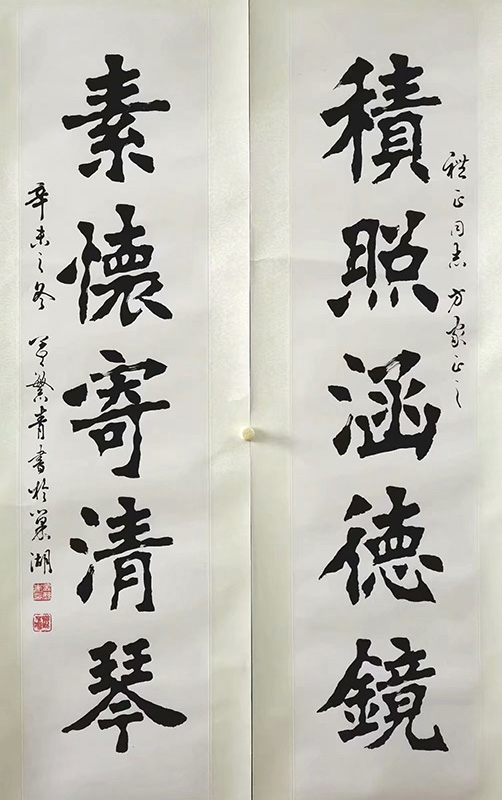 積照涵德鏡
同志方家正之
素懷寄清琴
辛未之冬 繁青書於巢湖